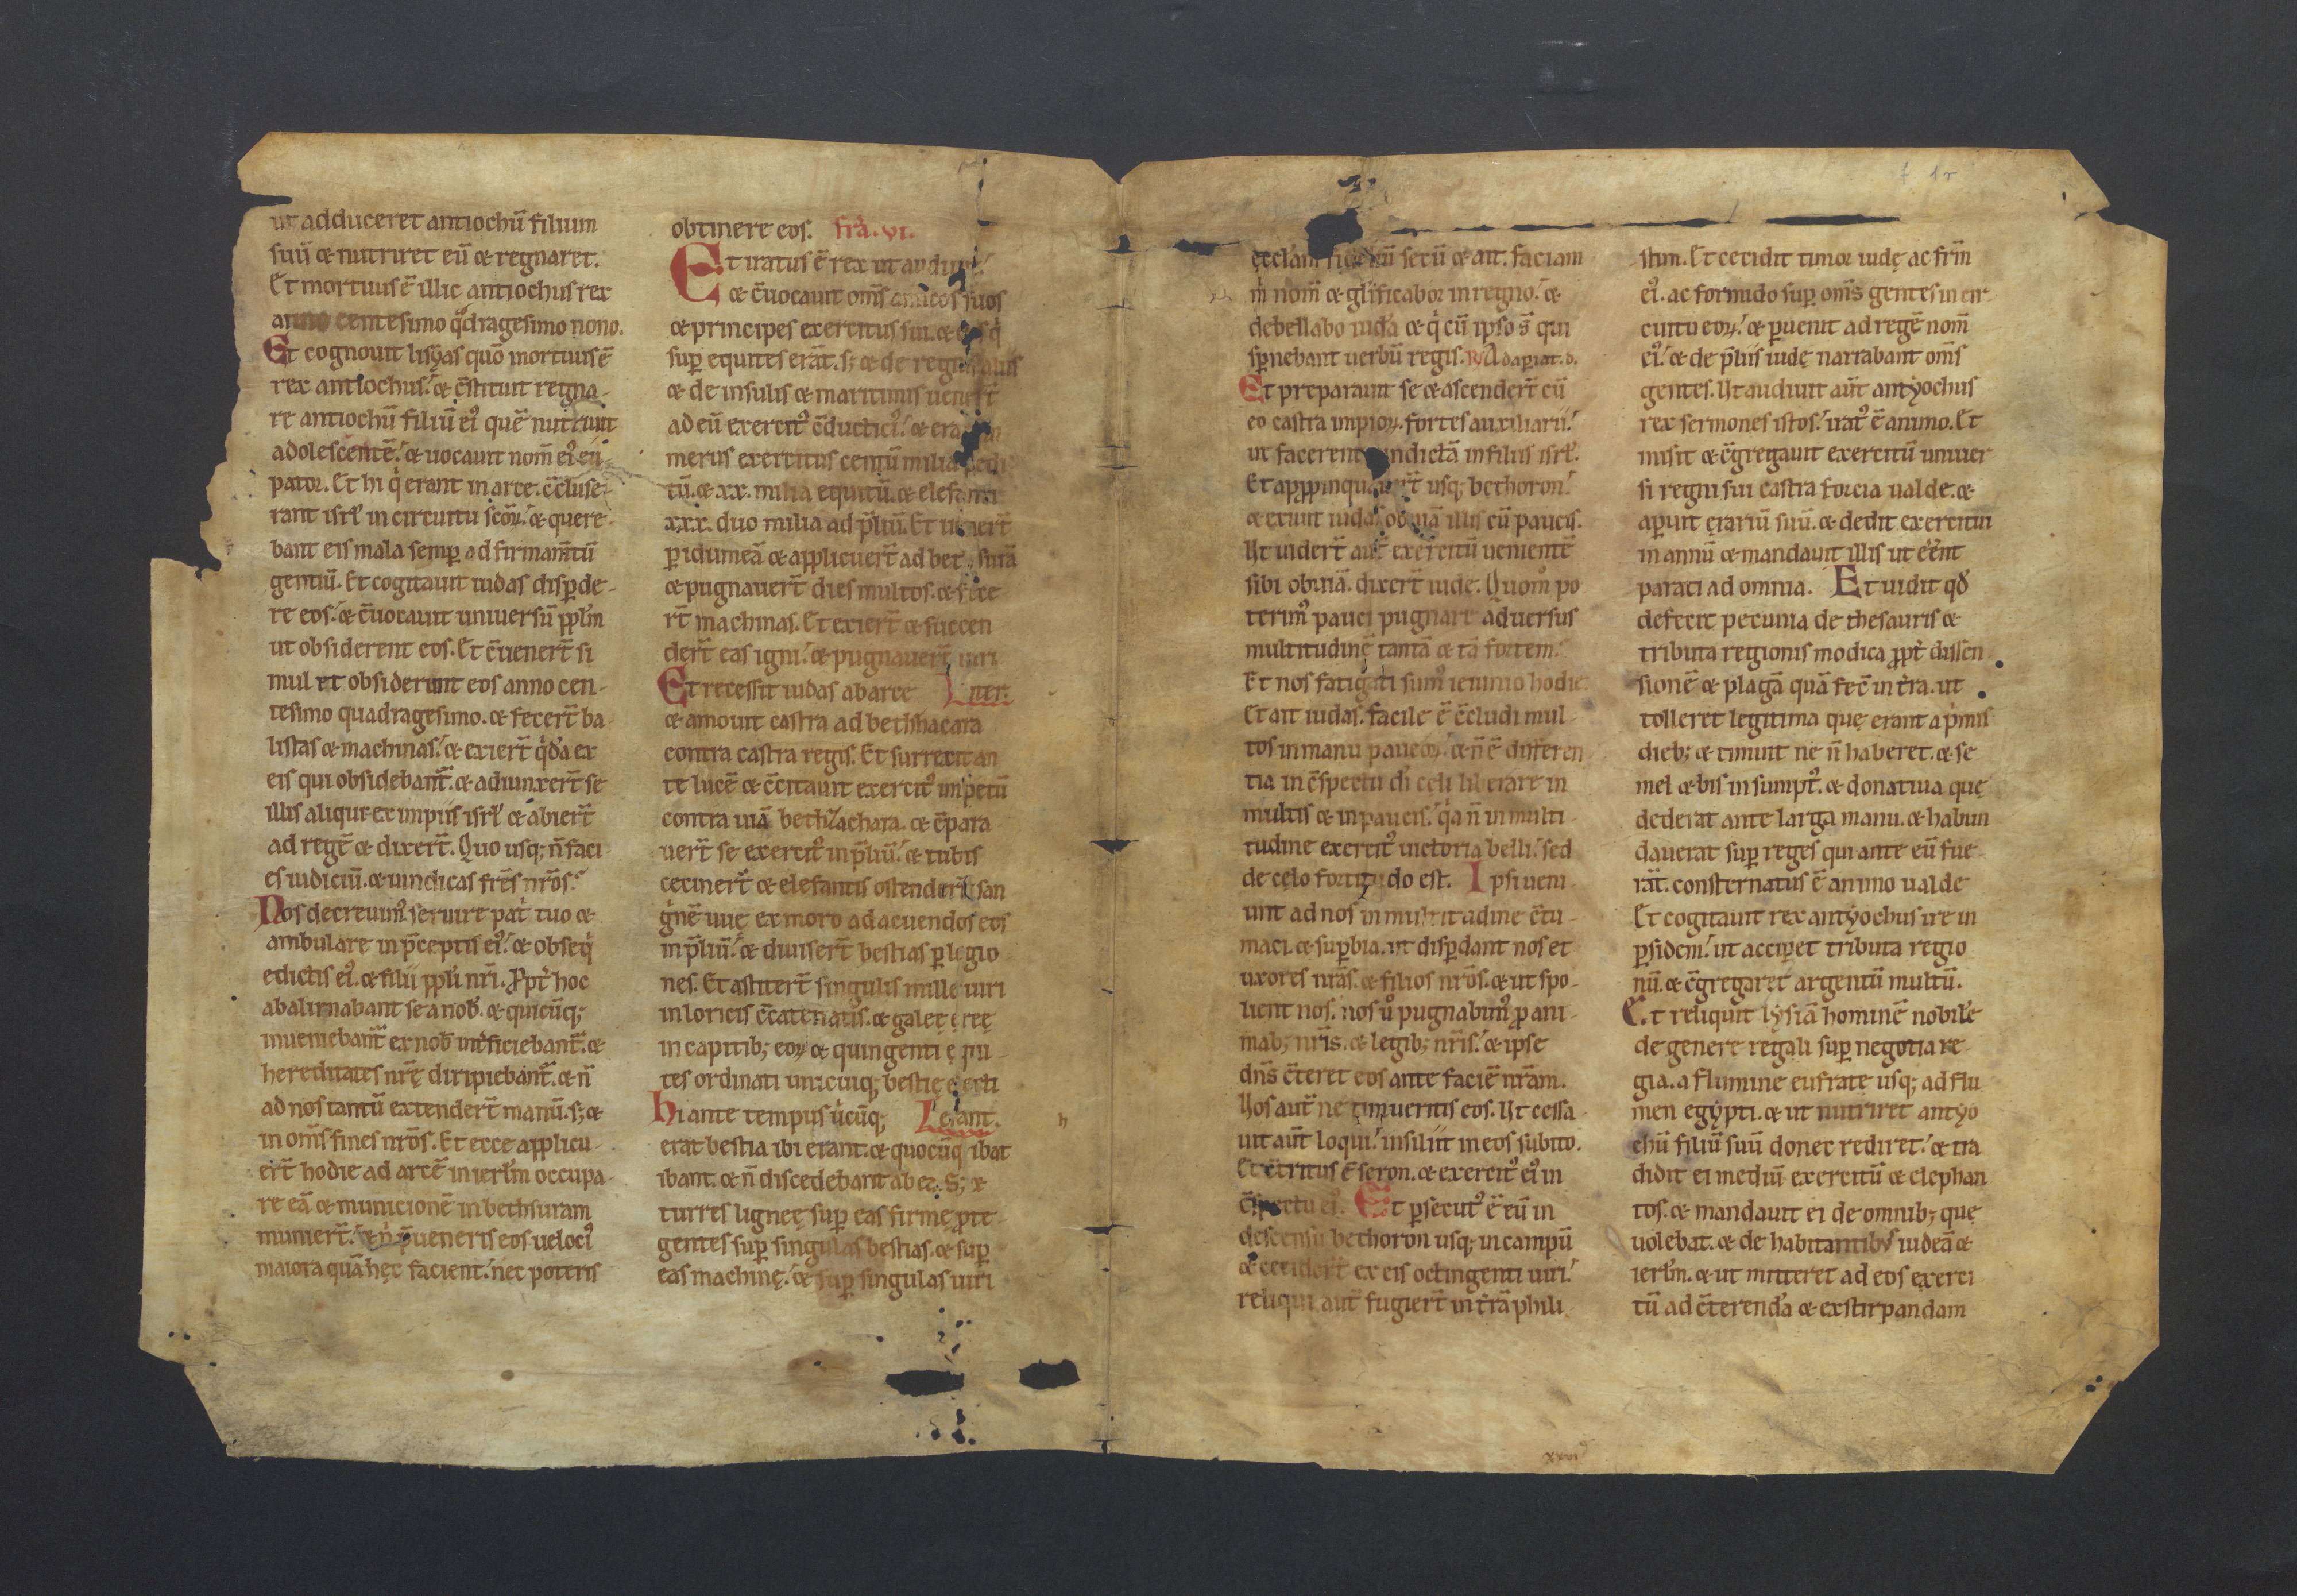 ut adduceret antiochū filium
suū ⁊ nutriret eū ⁊ regnaret.
Et mortuus ē illic antiochus rex
anno centesimo qͣdragesimo nono.
Et cognouit lisẏas quō mortuus ē
rex antiochus. ⁊ c̄stituit regna-
re antiochū filiū eiꝰ quē nutriuit
adolescentē. ⁊ uocauit nom̄ eiꝰ eu-
pator. Et hi qͥ erant in arce. c̄cluse-
rant isrł in circuitu scōꝝ. ⁊ quere-
bant eis mala semꝑ ad firmam̄tū
gentiū. Et cogitauit iudas disꝑde-
re eos. ⁊ c̄uocauit uniuersū ppłm
ut obsiderent eos. Et c̄uenert̄ si
mul et obsiderunt eos anno cen-
tesimo quadragesimo. ⁊ fecert̄ ba
listas ⁊ machinas. ⁊ exiert̄ qͥdā ex
eis qui obsidebant̄. ⁊ adiunxert̄ se
illis aliqui ex impiis isrł ⁊ abiert̄
ad regē ⁊ dixert̄. Quo usq; n̄ faci
es iudiciū. ⁊ uindicas frēs nr̄os.
Nos decreuimꝰ seruire patͥ tuo ⁊
ambulare in p̄ceptis eiꝰ. ⁊ obseqͥ
edictis eiꝰ. ⁊ filii ppłi nr̄i. Ꝓptͥ hoc
abalienabant se a nob̄. ⁊ quicūq;
inueniebant̄ ex nob̄ int̄ficiebant̄. ⁊
hereditates nr̄ę diripiebant̄. ⁊ n̄
ad nos tantū extendert̄ manū. s; ⁊
in om̄s fines nr̄os. Et ecce applicu-
ert̄ hodie ad arcē in ierłm occupa-
re eā ⁊ municionē in bethsuram
muniert̄. ⁊ n̄ p̄ueneris eos uelociꝰ
maiora quā hęc facient. nec poteris
obtinere eos. fr̄a. vi.
Et iratus ē rex ut audiuit.
⁊ c̄uocauit om̄s amicos suos
⁊ principes exercitus sui. ⁊ eos qͥ
suꝑ equites erāt. s; ⁊ de regnis aliis
⁊ de insulis ⁊ maritimis uenert̄
ad eū exercitꝰ c̄ducticiꝰ. ⁊ erat nu
merus exercitus centū milia pedi
tū. ⁊ xx. milia equitū. ⁊ elefanti
xxx. duo milia ad p̄liū. Et uenert̄
ꝑ idumeā ⁊ applicuert̄ ad bet surā
⁊ pugnauert̄ dies multos. ⁊ fece
rt̄ machinas. Et exiert̄ ⁊ succen
dert̄ eas igni. ⁊ pugnauert̄ uiri
Et recessit iudas ab arce
⁊ amouit castra ad bethzhacara
contra castra regis. Et surrexit an
te lucē ⁊ c̄citauit exercitꝰ impetū
contra uiā bethzachara. ⁊ c̄para
uert̄ se exercitꝰ in p̄liū. ⁊ tubis
cecinert̄ ⁊ elefantis ostendert̄ san
gͥnē uuę ex moro ad acuendos eos
in p̄liū. ⁊ diuisert̄ bestias ꝑ legio
nes. Et astitert̄ singulis mille uiri
in loricis c̄catenatis. ⁊ galeę ereę
in capitib; eoꝝ ⁊ quingenti equi-
tes ordinati unicuiq; bestię electi
Hi ante tempus u̇cūq; Legant.
erat bestia ibi erant. ⁊ quocūq ibat
ibant. ⁊ n̄ discedebant ab ea. S; ⁊
turres ligneę suꝑ eas firmę ꝓte-
gentes suꝑ singulas bestias. ⁊ suꝑ
eas machinę. ⁊ suꝑ singulas uiri
ęcclam secū ⁊ ait. faciam
m nom̄ ⁊ gl̄ificabor in regno. ⁊
debellabo iudā ⁊ qͥ cū ipso s̄ qui
sꝑnebant uerbū regis. ℟ Adaperiat. d.
Et preparauit se ⁊ ascendert̄ cū
eo castra impioꝝ. fortes auxiliarii.
ut facerent uindictā in filiis isrł.
Et apꝓpinquauert̄ usq; bethoron.
⁊ exiuit iudas obuiā illis cū paucis.
Ut uidert̄ aut̄ exercitū uenientē
sibi obuiā. dixert̄ iude. Quomꝰ po
terimꝰ pauci pugnare aduersus
multitudinē tantā ⁊ tā fortem.
Et nos fatigati sumꝰ ieiunio hodie.
Et ait iudas. facile ē c̄cludi mul-
tos in manu paucoꝝ. ⁊ n̄ ē differen
tia in c̄spectu di celi liberare in
multis ⁊ in paucis. qͥa n̄ in multi-
tudine exercitꝰ uictoria belli. sed
de cęlo fortitudo est. Ipsi ueni
unt ad nos in multitudine c̄tu-
maci. ⁊ suꝑbia. ut disꝑdant nos et
uxores nr̄as. ⁊ filios nr̄os. ⁊ ut spo-
lient nos. nos u̇ pugnabimꝰ ꝓ ani-
mab; nr̄is. ⁊ legib; nr̄is. ⁊ ipse
dn̄s c̄teret eos ante faciē nr̄am.
Uos aut̄ ne timueritis eos. Ut cessa
uit aut̄ loqui. insiliit in eos subito.
Et c̄tritus ē seron. ⁊ exercitꝰ eiꝰ in
c̄spectu eiꝰ. Et ꝑsecutꝰ ē eū in
descensu bethoron usq; in campū
⁊ cecidert̄ ex eis octingenti uiri.
reliqui aut̄ fugiert̄ in t̄rā phili
stim. Et cecidit timor iudę ac fr̄m
eiꝰ. ac formido suꝑ om̄s gentes in cir
cuitu eoꝝ. ⁊ ꝑuenit ad regē nom̄
eiꝰ. ⁊ de p̄liis iudę narrabant om̄s
gentes. Ut audiuit aut̄ antẏochus
rex sermones istos. iratꝰ ē animo. Et
misit ⁊ c̄gregauit exercitū uniuer
si regni sui castra forcia ualde. ⁊
aꝑuit ęrariū suū. ⁊ dedit exercitui
in annū ⁊ mandauit illis ut eēnt
parati ad omnia. Et uidit qd̄
defecit pecunia de thesauris ⁊
tributa regionis modica ꝓpt̄ dissen
sionē ⁊ plagā quā fec̄ in t̄ra. ut
tolleret legitima quę erant a pͥmis
dieb; ⁊ timuit ne n̄ haberet. ⁊ se
mel ⁊ bis in sumptꝰ. ⁊ donatiua quę
dederat ante larga manu. ⁊ habun
dauerat suꝑ reges qui ante eū fue
rāt. consternatus ē animo ualde
Et cogitauit rex antẏochus ire in
ꝑsidem. ut acciꝑet tributa regio
nū. ⁊ c̄gregaret argentū multū.
Et reliquit lẏsiā hominē nobilē
de genere regali suꝑ negotia re
gia. a flumine eufrate usq; ad flu
men egẏpti. ⁊ ut nutriret antẏo
chū filiū suū donec rediret. ⁊ tra
didit ei mediū exercitū ⁊ elephan
tos. ⁊ mandauit ei de omnib; quę
uolebat. ⁊ de habitantibꝰ iudeā ⁊
ierłm. ⁊ ut mitteret ad eos exerci
tū ad c̄terendā ⁊ exstirpandam
xxvi
f 1r